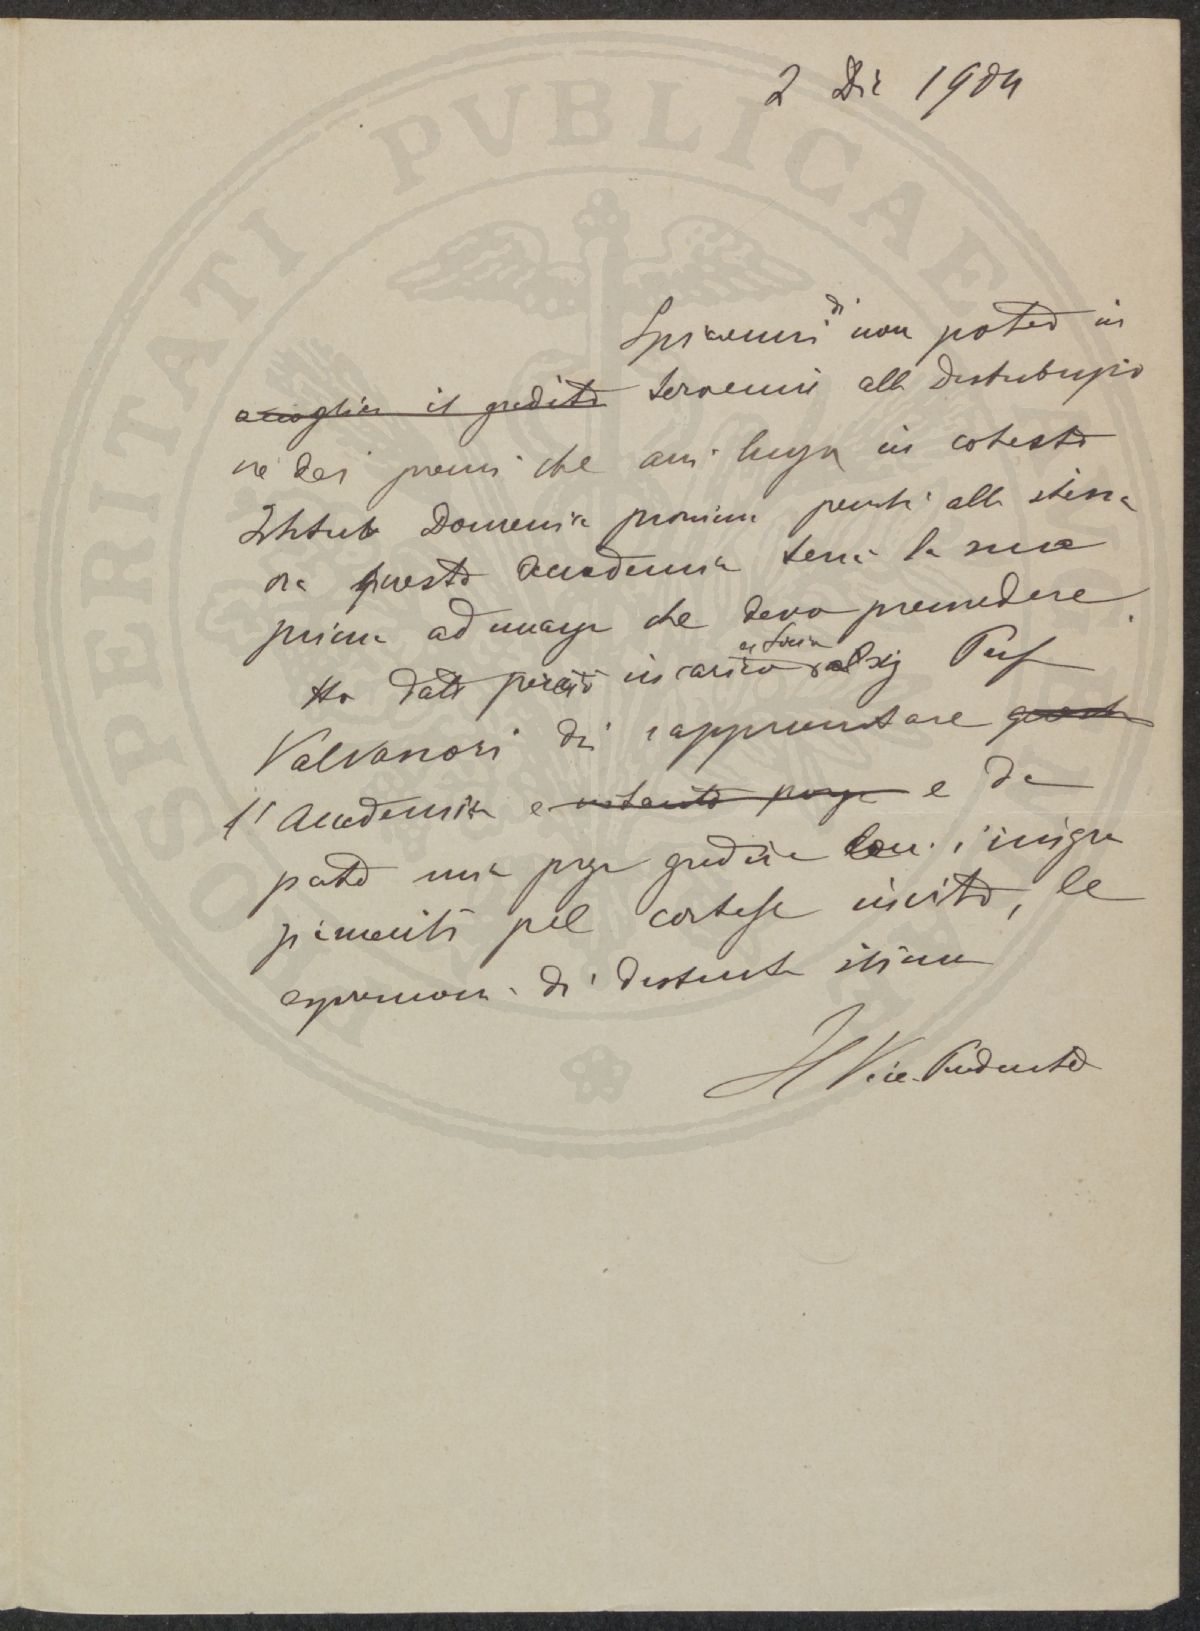 2 Dic 1904
Spiacemi di non poter in
accoglier il gradito tervenire alla distribuzio
ne dei premi che avrà luogo in cotesto
Istituto Domenica prossima perché alla stessa
ora questa Accademia terrà la sua
prima adunanza che devo presiedere.
Ho dato perciò incarico al Sig Prof
Valvassori di rappresentare questa
l'Accademia e e da
parte mia porga gradire con i ringra
ziamenti pel cortese invito, le
espressioni di distinta stima
Il Vice-Presidente
PROSPERITATI PVBLICAE